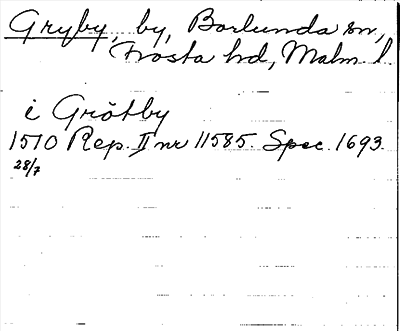 Gryby, by, Borlunda sn,
Frosta hd, Malm l.
i Grötby
1510 Rep. II nr 11585. Spec. 1693.
28/7